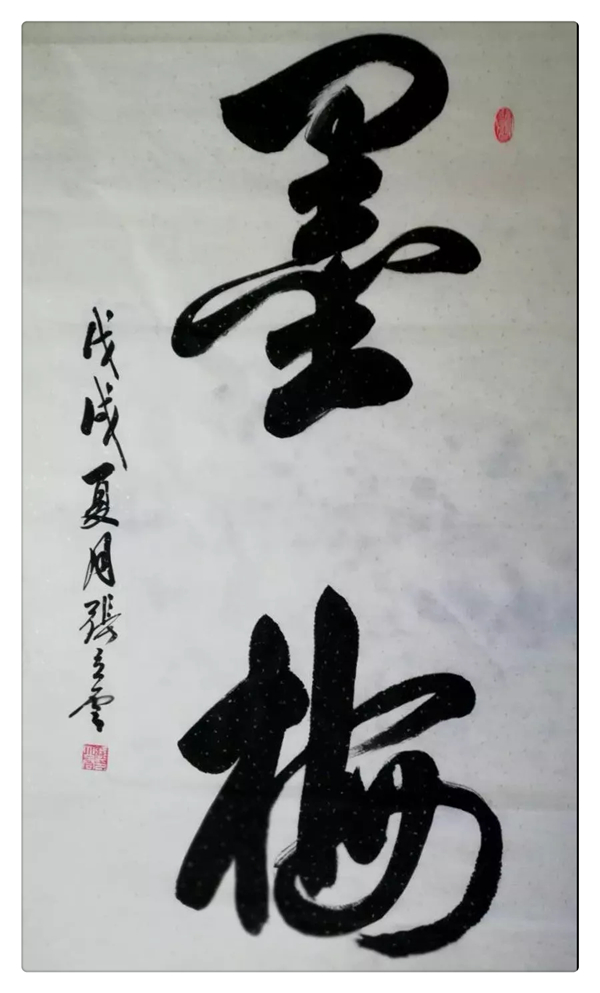 墨梅
戊戌夏月張立雲